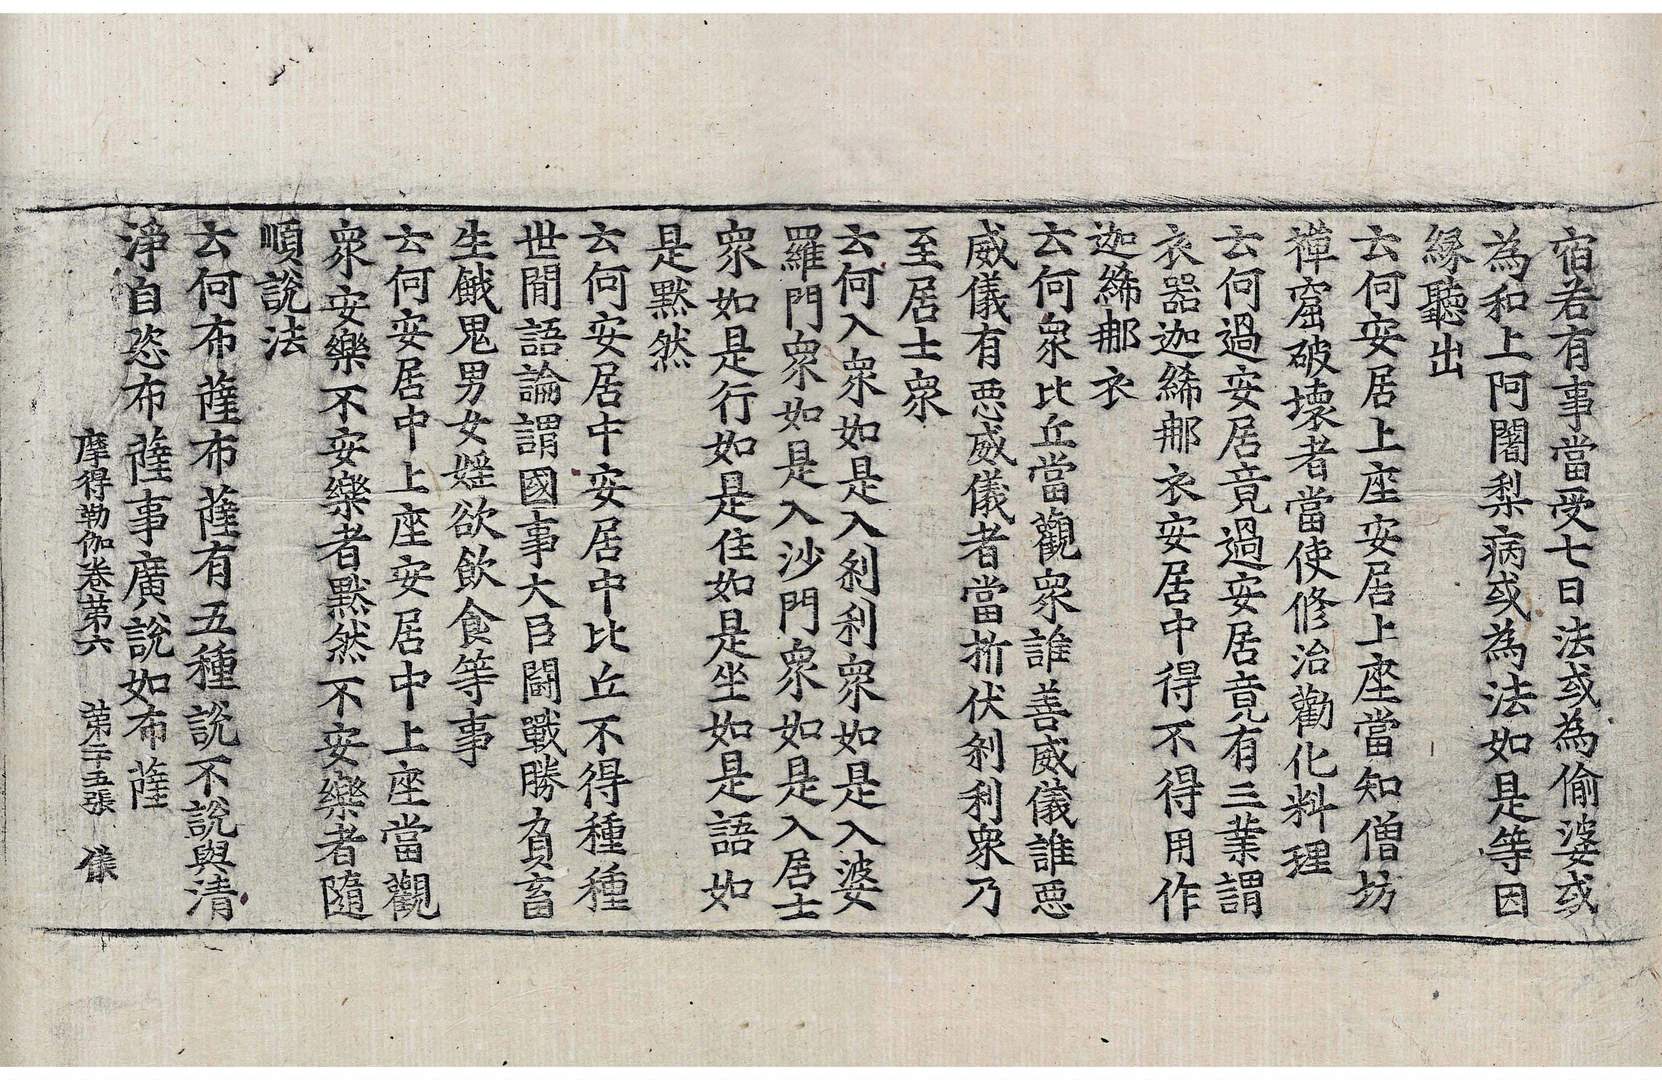 宿若有事當受七日法或為偷婆或
為和上阿闍梨病或為法如是等因
緣聽出
云何安居上座安居上座當知僧坊
禪窟破壞者當使修治勸化料理
云何過安居竟過安居竟有三業謂
衣器迦絺那衣安居中得不得用作
迦絺那衣
云何衆比丘當觀衆誰善威儀誰惡
威儀有惡威儀者當折伏刹利衆乃
至居士衆
云何入衆如是入刹利衆如是入婆
羅門衆如是入沙門衆如是入居士
衆如是行如是住如是坐如是語如
是黙然
云何安居中安居中比丘不得種種
世間語論謂國事大臣鬪戰勝負畜
生餓鬼男女婬欲飲食等事
云何安居中上座安居中上座當觀
衆安樂不安樂者黙然不安樂者隨
順說法
云何布薩布薩有五種說不說與清
淨自恣布薩事廣說如布薩
摩得勒伽卷第六 第二十五張 儀